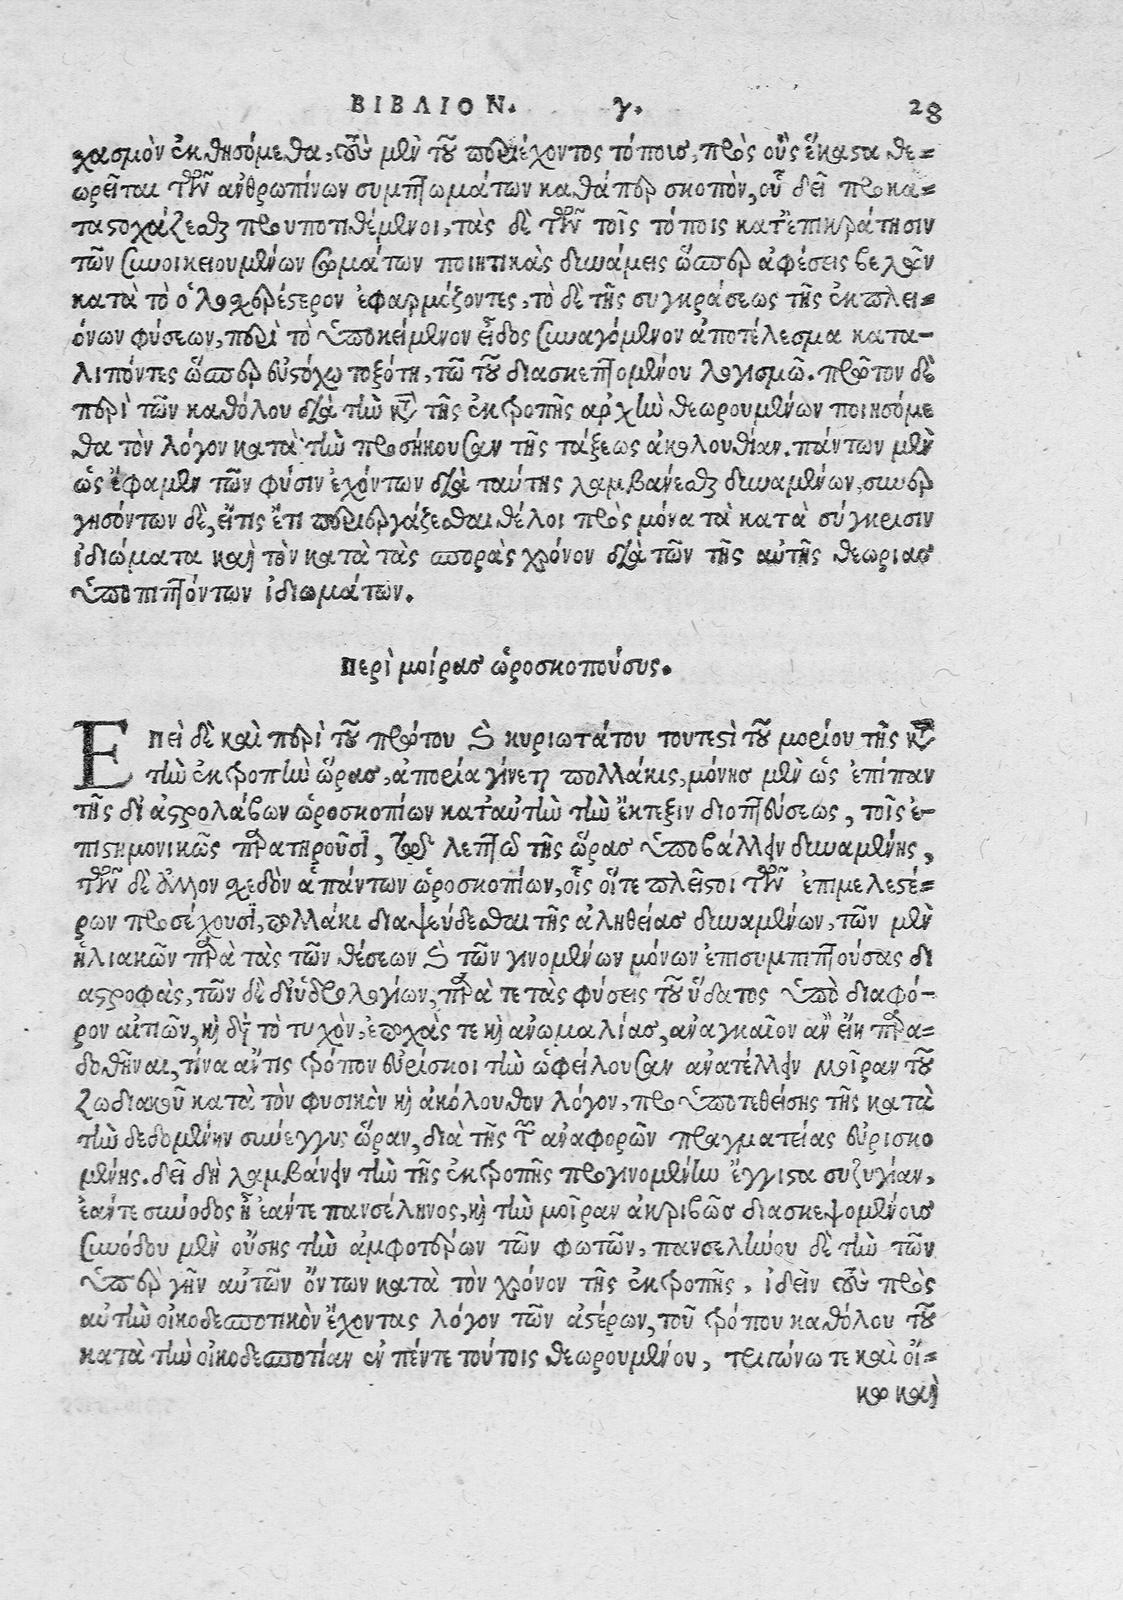 ΒΙΒΛΙΟΝ. γ. 28
χασμὸν ἐκθησόμεθα, τοὺς μὲν τοῦ περιέχοντος τόποις, πρὸς οὓς ἕκαστα θε=
ωρεῖται τῶν ἀνθρωπίνων συμπτωμάτων καθάπερ σκοπὸν, οὗ δεῖ προκα=
ταστοχάζεσθαι προυποτιθέμενοι, τὰς δὲ τῶν τοῖς τόποις κατ᾽ ἐπικράτησιν
τῶν συνοικειουμένων σωμάτων ποιητικὰς δυνάμεις ὥσπερ ἀφέσεις βελῶν
κατὰ τὸ ὁλοσχερέστερον ἐφαρμόζοντες, τὸ δὲ τῆς συγκράσεως τῆς ἐκ πλει=
όνων φύσεων, περὶ τὸ ὑποκείμενον εἶδος συναγόμενον ἀποτέλεσμα κατα-
λιπόντες ὥσπερ εὐστόχω τοξότη, τῶ τοῦ διασκεπτομένου λογισμῶ. πρῶτον δὲ
περὶ τῶν καθόλου διὰ τὴν κτ τῆς ἐκτροπῆς ἀρχὴν θεωρουμένων ποιησόμε
θα τὸν λόγον κατὰ τὴν προσήκουσαν τῆς τάξεως ἀκολουθίαν. πάντων μὲν
ὡς ἔφαμεν τῶν φύσιν ἐχόντων διὰ ταύτης λαμβάνεσθαι δυναμένων, συνερ
γησόντων δὲ, εἴτις ἔτι περιεργάζεσθαι θέλοι πρὸς μόνα τὰ κατὰ σύγκρισιν
ἰδιώματα καὶ τὸν κατὰ τὰς σπορὰς χρόνον διὰ τῶν τῆς αὐτῆς θεωριας
ὑποπιπτόντων ἰδιωμάτων.
Περὶ μοίρας ὡροσκοπούσυς.
Επεὶ δὲ καὶ περὶ τοῦ πρώτου καὶ κυριωτάτου τουτεστὶ τοῦ μορίου τῆς κτ
τὴν ἐκτροπὴν ὥρας, ἀπορία γίνεται πολλάκις, μόνης μὲν ὡς ἐπίπαν
τῆς δι ἀστρολάβων ὡροσκοπίων κατ᾽ αὐτὴν τὴν ἔκτεξιν διοπτεύσεως, τοῖς ἐ-
πιστημονικῶς παρατηροῦσι, τὸ λεπτὸν τῆς ὥρας ὑποβάλλειν δυναμένης,
τῶν δὲ ἄλλων σχεδὸν ἁπάντων ὡροσκοπίων, οἷς οἵτε πλεῖστοι τῶν ἐπιμελεστέ=
ρων προσέχουσι, πολλάκι διαψεύδεσθαι τῆς ἀληθείας δυναμένων, τῶν μὲν
ἡλιακῶν παρὰ τὰς τῶν θέσεων καὶ τῶν γινομένων μόνων ἐπισυμπιπτούσας δι
αστροφὰς, τῶν δὲ δι᾽ ὑδρολογίων, παρά τε τὰς φύσεις τοῦ ὕδατος ὑπὸ διαφό-
ρον αἰτιῶν, καὶ διὰ τὸ τυχὸν, ἐποχὰς τε καὶ ἀνωμαλίας, ἀναγκαῖον ἂν εἴη παρα=
δοθῆναι, τίνα αν τις τρόπον εὑρίσκοι τὴν ὡφείλουσαν ἀνατέλλειν μοῖραν τοῦ
ζωδιακοῦ κατὰ τὸν φυσικὸν καὶ ἀκόλουθον λόγον, προυποτεθείσης τῆς κατὰ
τὴν δεδομένην συνεγγυς ὥραν, διὰ τῆς τῶν ἀναφορῶν πραγματείας εὑρισκο
μένης. δεῖ δὴ λαμβάνειν τὴν τῆς ἐκτροπῆς προγινομένην ἔγγιστα συζυγίαν,
ἐάντε σύνοδος ἢ ἐάντε πανσέληνος, καὶ τὴν μοῖραν ἀκριβῶς διασκεψομένοις
συνόδου μὲν οὔσης τὴν ἀμφοτέρων τῶν φωτῶν, πανσελήνου δὲ τὴν τῶν
ὑπὲρ γῆν αὐτῶν ὄντων κατὰ τὸν χρόνον τῆς ἐκτροπῆς, ἰδεῖν τοὺς πρὸς
αὐτὴν οἰκοδεσποτικὸν ἔχοντας λόγον τῶν ἀστέρων, τοῦ τρόπου καθόλου τοῦ
κατὰ τὴν οἰκοδεσποτίαν ἐν πέντε τούτοις θεωρουμένου, τριγώνω τε καὶ οἴ=
κω καὶ